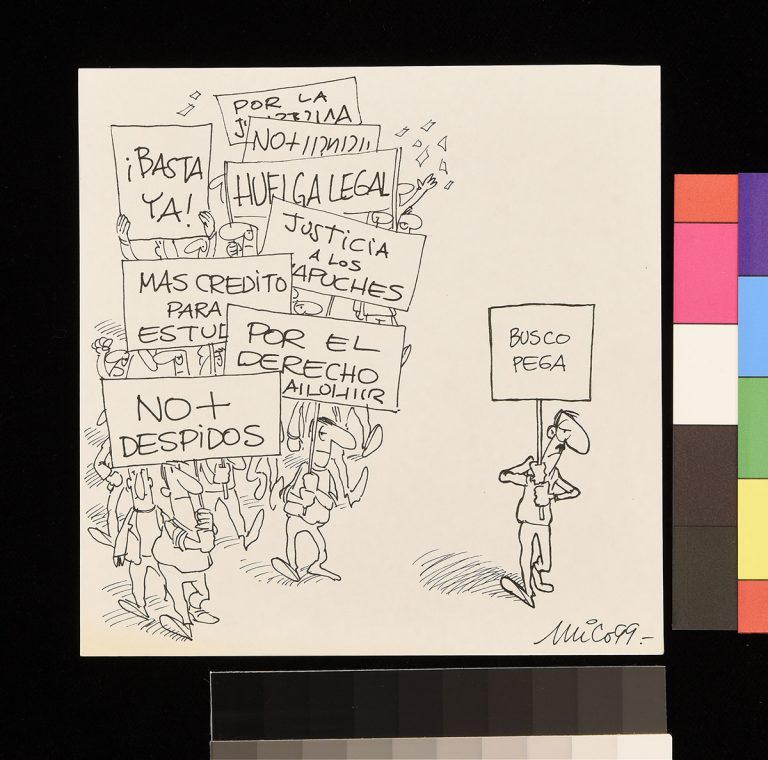 POR LA
NO+
¡BASTA
YA!
HUELGA LEGAL
JUSTICIA
A LOS
APUCHES
MAS CREDITO
PARA
ESTUD
POR EL
DERECHO
NO+
DESPIDOS
BUSCO
PEGA
MiCo99.-